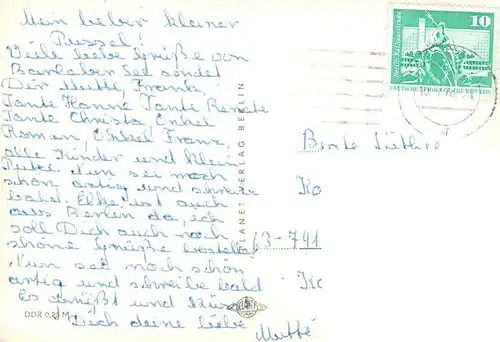 Mein lieber kleiner
Pussel!
Viele liebe Grüße von
Barleber See sendet
Dir Mutti, Frank,
Tante Hanne Tante Renate
Tante Christa Onkel
Roman, Onkel Franz,
alle Kinder und klein
Nun sei noch
schön artig und schreibe
bald. Elke ist auch
aus Berlin da, ich
soll Dich auch noch
schöne Grüße bestellen
Nun sei noch schön
artig und schreibe bald
Es grüßt und küsst
Dich deine liebe
Mutti
DDR 0,25 M
PLANET-VERLAG BERLIN
10
DEUTSCHE DEMOKRATISCHE REPUBLIK
63-741